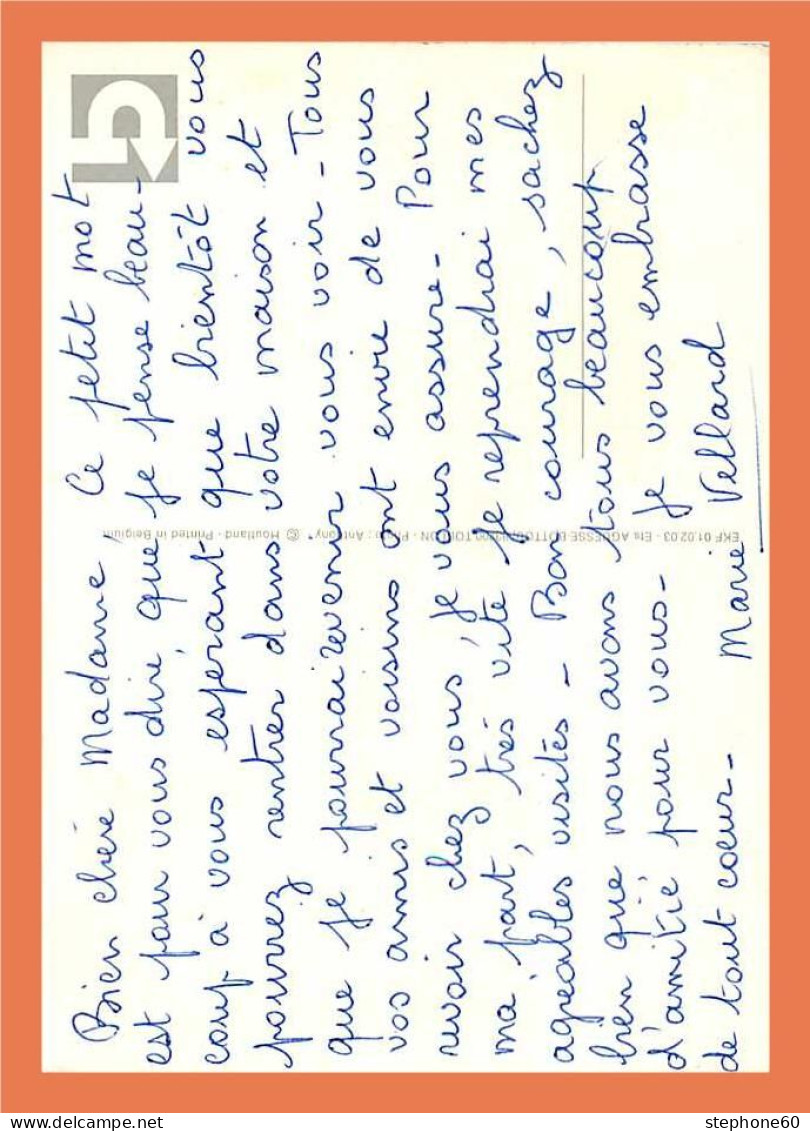 Bien chère Madame, Ce petit mot
est pour vous dire, que je pense beau-
coup à vous espérant que bientôt vous
pourrez rentrer dans votre maison et
que je pourrai revenir vous voir - Tous
vos amis et voisins ont envie de vous
revoir chez vous, je vous assure - Pour
ma part, très vite je reprendrai mes
agréables visites - Bon courage, sachez
bien que nous avons tous beaucoup
d'amitié pour vous - Je vous embrasse
de tout coeur -
Marie Vellard
EKF 01.02.03 - Ets AGUESSE BOTTOU 83200 TOULON - Photo : Anthony - © Houtland - Printed in Belgium
stephone60